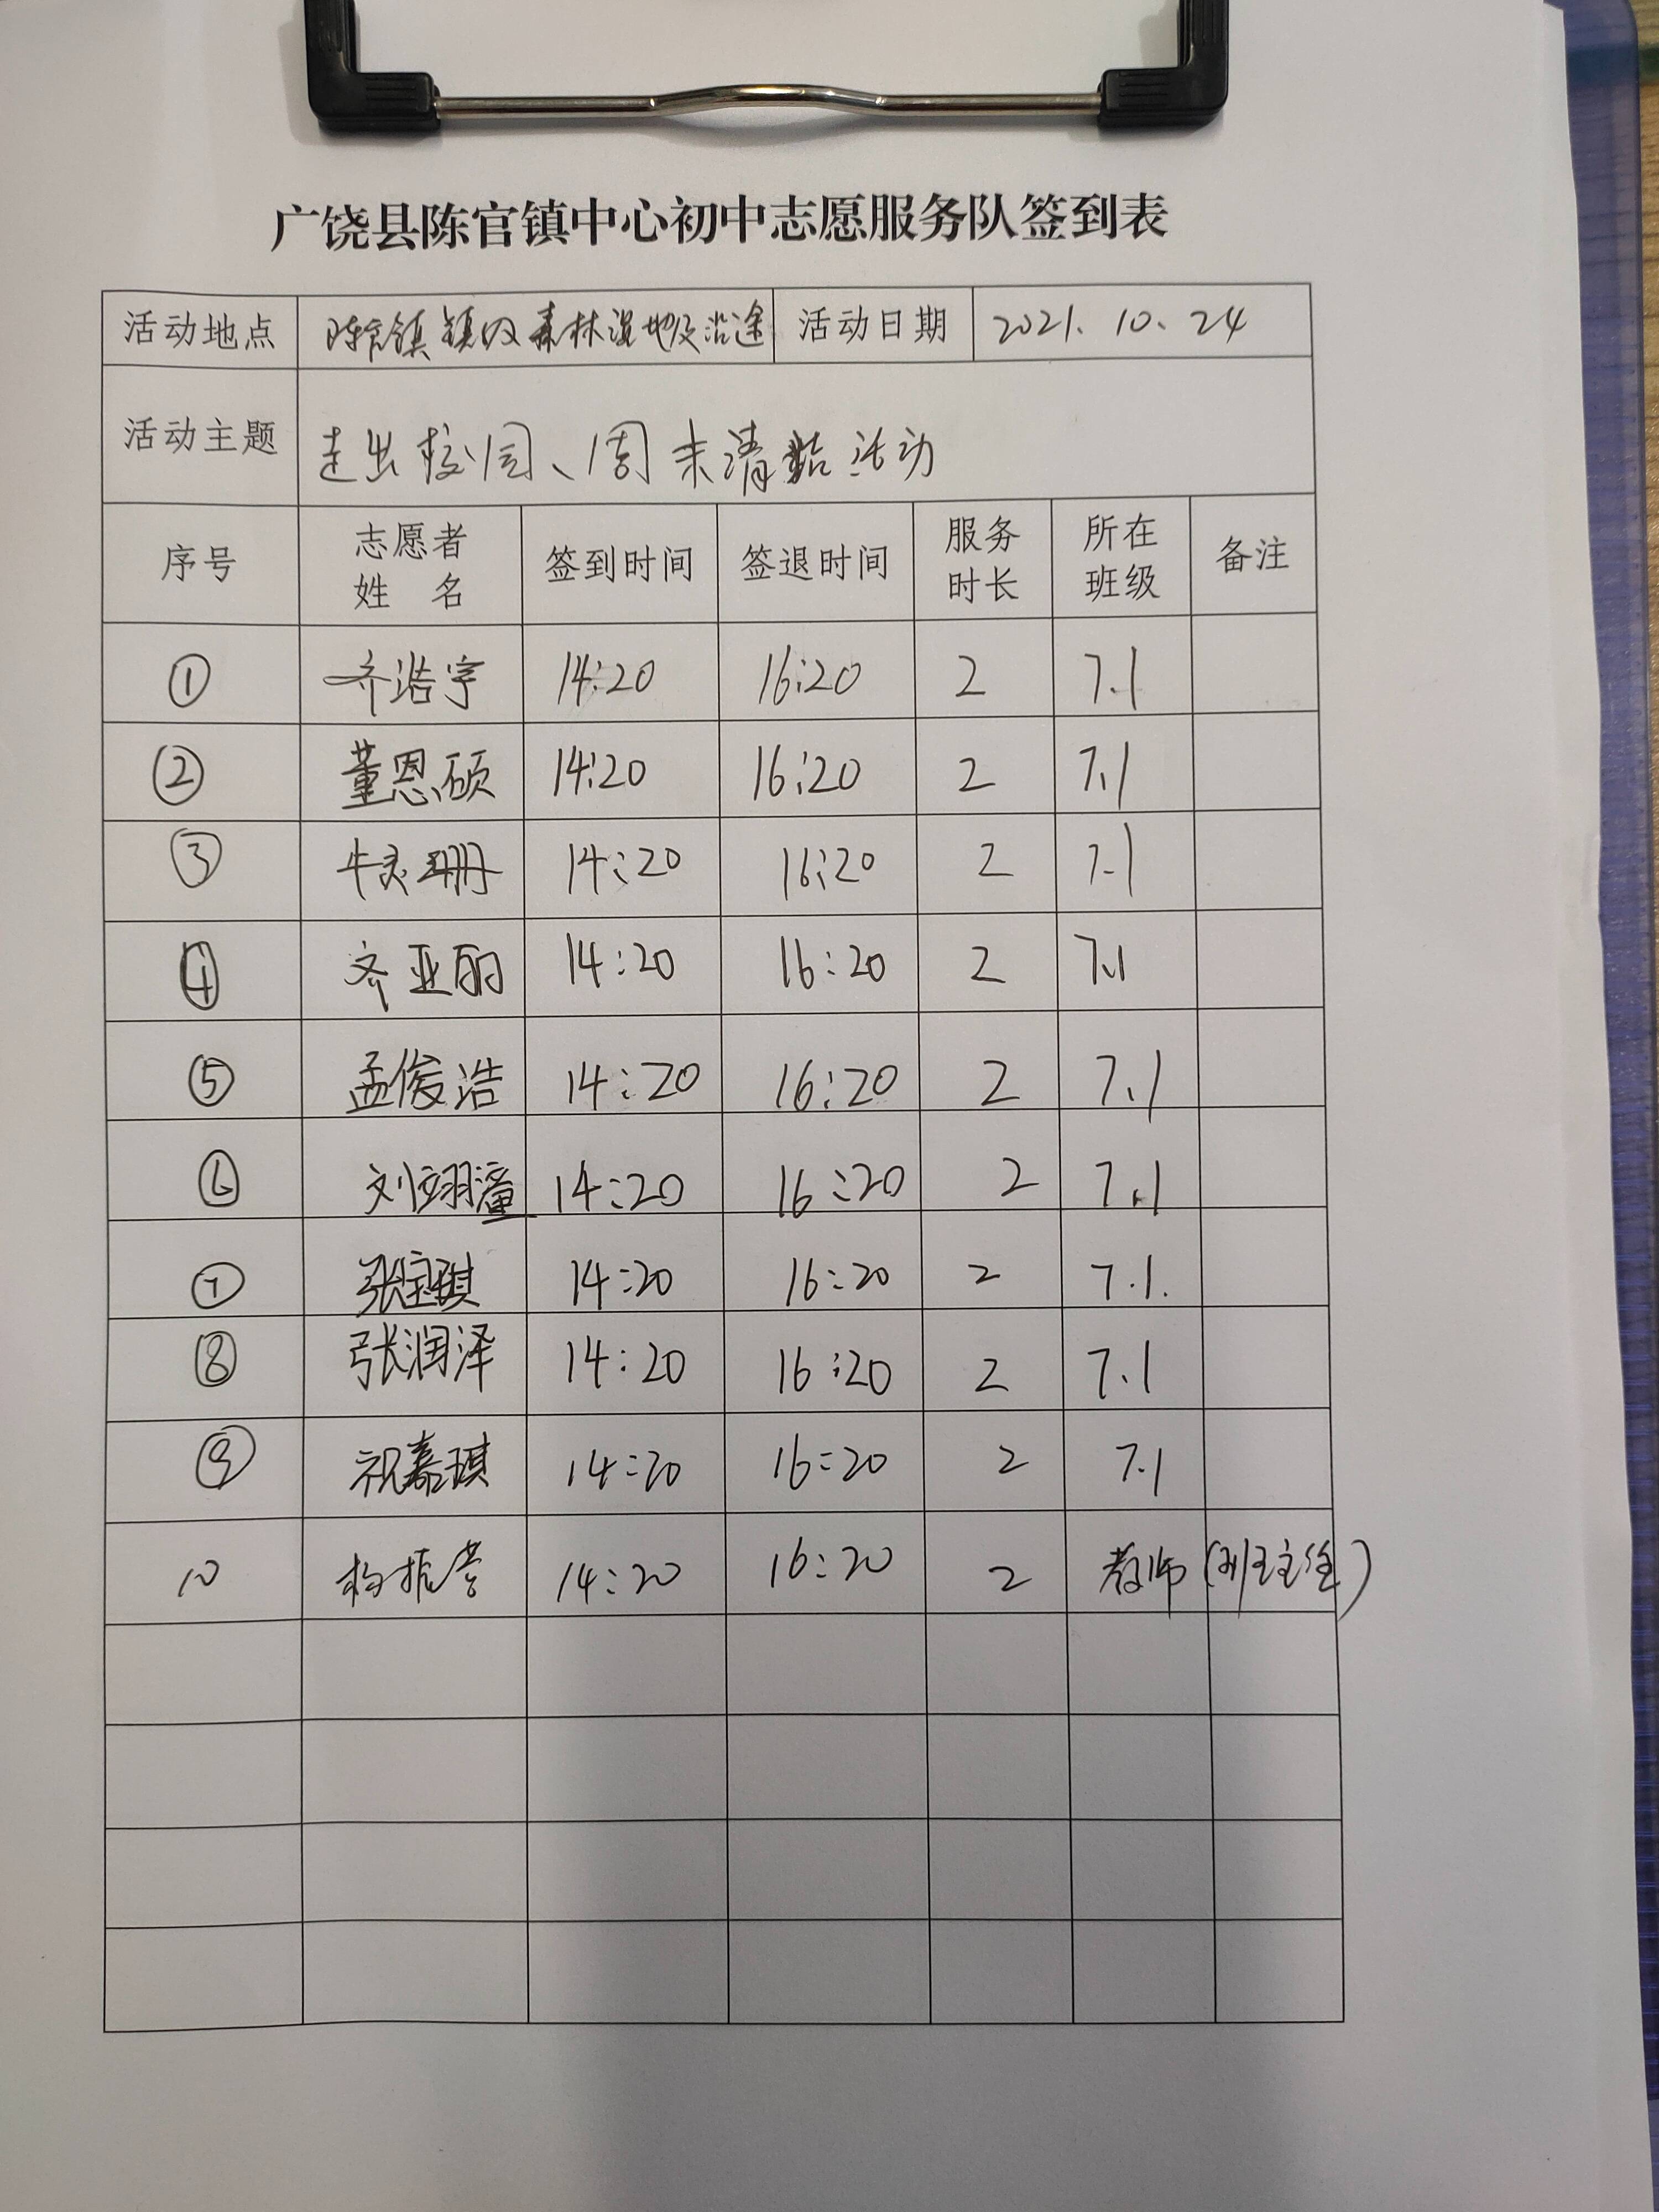 广饶县陈官镇中心初中志愿服务队签到表
活动地点 陈官镇镇内森林湿地及沿途 活动日期 2021.10.24
活动主题 走出校园、周末清洁活动
序号 志愿者姓名 签到时间 签退时间 服务时长 所在班级 备注
① 齐浩宇 14:20 16:20 2 7.1
② 董恩硕 14:20 16:20 2 7.1
③ 牛灵珊 14:20 16:20 2 7.1
④ 齐亚丽 14:20 16:20 2 7.1
⑤ 孟俊浩 14:20 16:20 2 7.1
⑥ 刘翊潼 14:20 16:20 2 7.1
⑦ 张宝琪 14:20 16:20 2 7.1.
⑧ 张润泽 14:20 16:20 2 7.1
⑨ 祝嘉琪 14:20 16:20 2 7.1
10 14:20 16:20 2 教师(班主任)